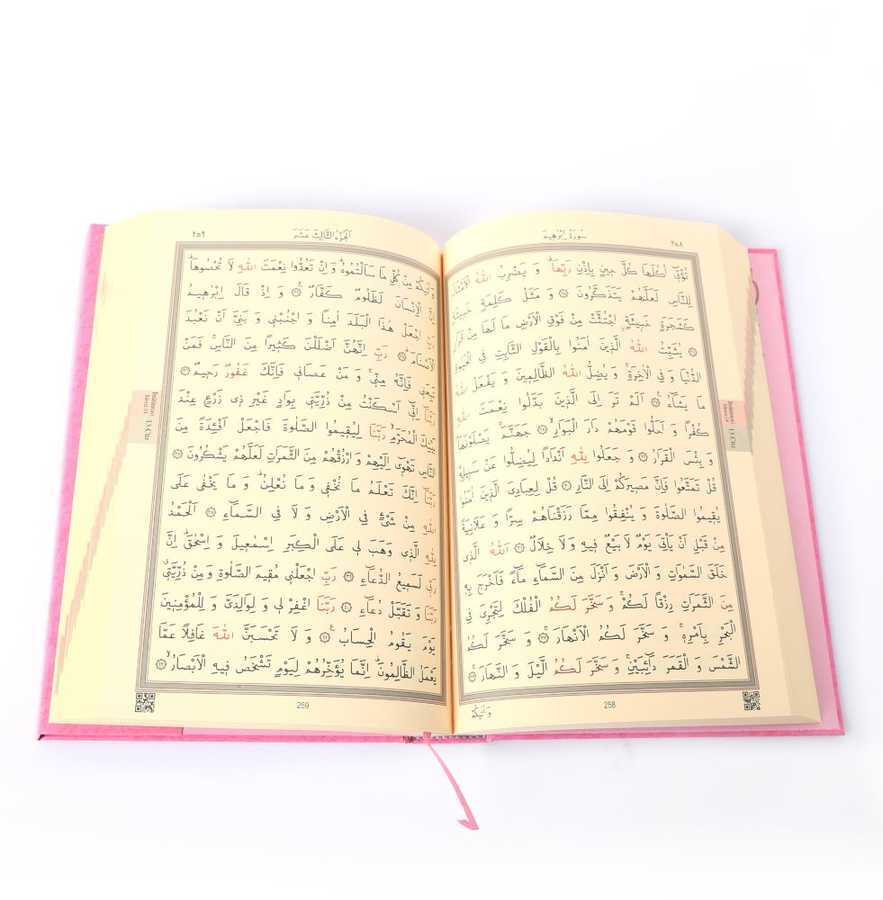 سُورَةُ اِبْرٰه۪يمَ
٢٥٨
تُؤْت۪ٓي اُكُلَهَا كُلَّ ح۪ينٍ بِاِذْنِ رَبِّهَاۜ وَ يَضْرِبُ اللّٰهُ الْاَمْثَالَ
لِلنَّاسِ لَعَلَّهُمْ يَتَذَكَّرُونَ ۝ وَ مَثَلُ كَلِمَةٍ خَب۪يثَةٍ
كَشَجَرَةٍ خَب۪يثَةٍۨ اجْتُثَّتْ مِنْ فَوْقِ الْاَرْضِ مَا لَهَا مِنْ قَرَارٍ
۝ يُثَبِّتُ اللّٰهُ الَّذ۪ينَ اٰمَنُوا بِالْقَوْلِ الثَّابِتِ فِي الْحَيٰوةِ
الدُّنْيَا وَ فِي الْاٰخِرَةِۚ وَ يُضِلُّ اللّٰهُ الظَّالِم۪ينَ وَ يَفْعَلُ اللّٰهُ
مَا يَشَٓاءُ۟ ۝ اَلَمْ تَرَ اِلَى الَّذ۪ينَ بَدَّلُوا نِعْمَتَ اللّٰهِ
كُفْرًا وَ اَحَلُّوا قَوْمَهُمْ دَارَ الْبَوَارِۙ ۝ جَهَنَّمَۚ يَصْلَوْنَهَاۜ
وَ بِئْسَ الْقَرَارُ ۝ وَ جَعَلُوا لِلّٰهِ اَنْدَادًا لِيُضِلُّوا عَنْ سَب۪يلِه۪ۜ
قُلْ تَمَتَّعُوا فَاِنَّ مَص۪يرَكُمْ اِلَى النَّارِ ۝ قُلْ لِعِبَادِيَ الَّذ۪ينَ اٰمَنُوا
يُق۪يمُوا الصَّلٰوةَ وَ يُنْفِقُوا مِمَّا رَزَقْنَاهُمْ سِرًّا وَ عَلَانِيَةً
مِنْ قَبْلِ اَنْ يَأْتِيَ يَوْمٌ لَا بَيْعٌ ف۪يهِ وَ لَا خِلَالٌ ۝ اَللّٰهُ الَّذ۪ي
خَلَقَ السَّمٰوَاتِ وَ الْاَرْضَ وَ اَنْزَلَ مِنَ السَّمَٓاءِ مَٓاءً فَاَخْرَجَ بِه۪
مِنَ الثَّمَرَاتِ رِزْقًا لَكُمْۚ وَ سَخَّرَ لَكُمُ الْفُلْكَ لِتَجْرِيَ فِي
الْبَحْرِ بِاَمْرِه۪ۚ وَ سَخَّرَ لَكُمُ الْاَنْهَارَۚ ۝ وَ سَخَّرَ لَكُمُ
الشَّمْسَ وَ الْقَمَرَ دَٓائِبَيْنِۚ وَ سَخَّرَ لَكُمُ الَّيْلَ وَ النَّهَارَۚ ۝
258
وَ اٰتٰيكُمْ
13.Cüz
اَلْجُزْءُ الثَّالِثَ عَشَرَ
٢٥٩
وَ اٰتٰيكُمْ مِنْ كُلِّ مَا سَاَلْتُمُوهُۜ وَ اِنْ تَعُدُّوا نِعْمَتَ اللّٰهِ لَا تُحْصُوهَاۜ
اِنَّ الْاِنْسَانَ لَظَلُومٌ كَفَّارٌ۟ ۝ وَ اِذْ قَالَ اِبْرٰه۪يمُ
رَبِّ اجْعَلْ هٰذَا الْبَلَدَ اٰمِنًا وَ اجْنُبْن۪ي وَ بَنِيَّ اَنْ نَعْبُدَ
الْاَصْنَامَۜ ۝ رَبِّ اِنَّهُنَّ اَضْلَلْنَ كَث۪يرًا مِنَ النَّاسِۚ فَمَنْ
تَبِعَن۪ي فَاِنَّهُ مِنّ۪يۚ وَ مَنْ عَصَان۪ي فَاِنَّكَ غَفُورٌ رَح۪يمٌ ۝
رَبَّنَٓا اِنّ۪ٓي اَسْكَنْتُ مِنْ ذُرِّيَّت۪ي بِوَادٍ غَيْرِ ذ۪ي زَرْعٍ عِنْدَ
بَيْتِكَ الْمُحَرَّمِۙ رَبَّنَا لِيُق۪يمُوا الصَّلٰوةَ فَاجْعَلْ اَفْـِٔدَةً مِنَ
النَّاسِ تَهْو۪ٓي اِلَيْهِمْ وَ ارْزُقْهُمْ مِنَ الثَّمَرَاتِ لَعَلَّهُمْ يَشْكُرُونَ ۝
رَبَّنَٓا اِنَّكَ تَعْلَمُ مَا نُخْف۪ي وَ مَا نُعْلِنُۜ وَ مَا يَخْفٰى عَلَى
اللّٰهِ مِنْ شَيْءٍ فِي الْاَرْضِ وَ لَا فِي السَّمَٓاءِ ۝ اَلْحَمْدُ
لِلّٰهِ الَّذ۪ي وَهَبَ ل۪ي عَلَى الْكِبَرِ اِسْمٰع۪يلَ وَ اِسْحٰقَۜ اِنَّ
رَبّ۪ي لَسَم۪يعُ الدُّعَٓاءِ ۝ رَبِّ اجْعَلْن۪ي مُق۪يمَ الصَّلٰوةِ وَ مِنْ ذُرِّيَّت۪يۗ
رَبَّنَا وَ تَقَبَّلْ دُعَٓاءِ ۝ رَبَّنَا اغْفِرْ ل۪ي وَ لِوَالِدَيَّ وَ لِلْمُؤْمِن۪ينَ
يَوْمَ يَقُومُ الْحِسَابُ۟ ۝ وَ لَا تَحْسَبَنَّ اللّٰهَ غَافِلًا عَمَّا
يَعْمَلُ الظَّالِمُونَۜ اِنَّمَا يُؤَخِّرُهُمْ لِيَوْمٍ تَشْخَصُ ف۪يهِ الْاَبْصَارُۙ ۝
259
13.Cüz